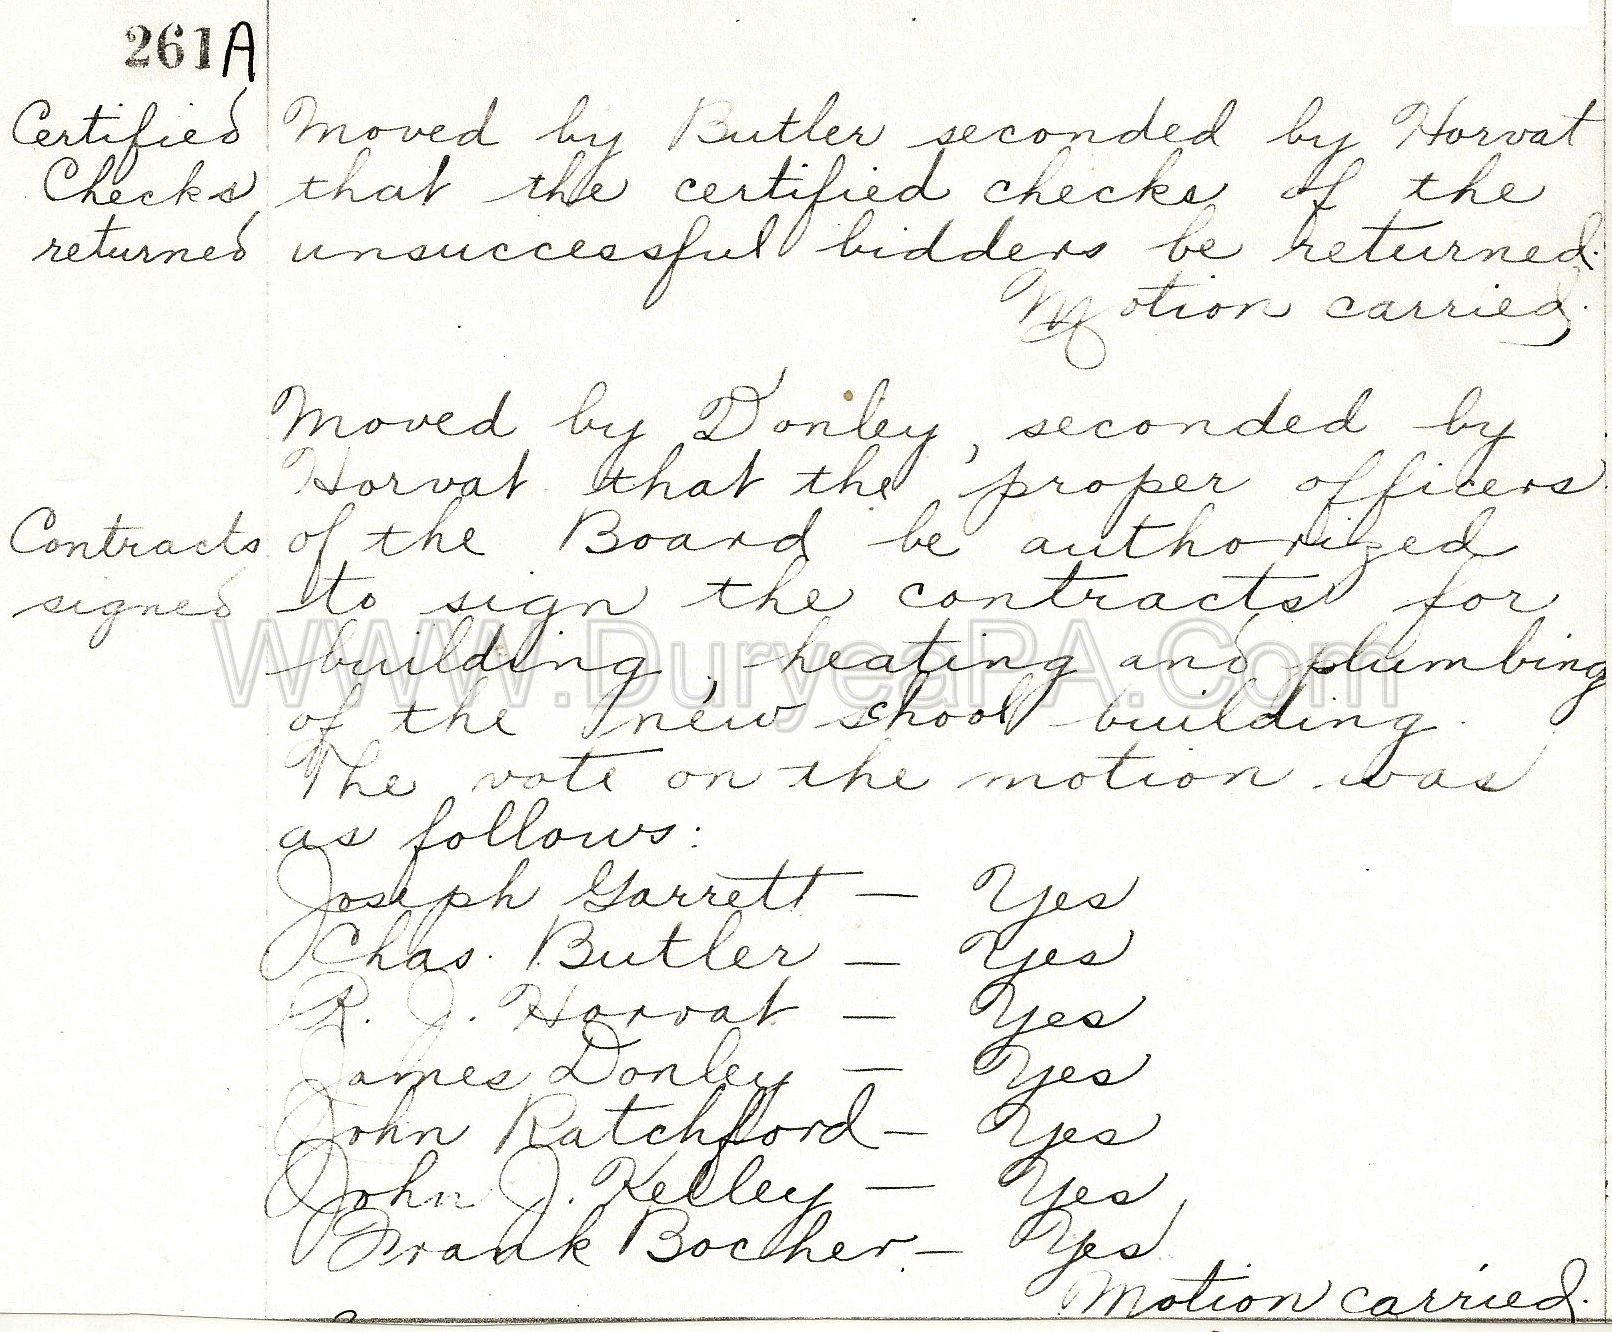 261A
Certified
Checks
returned
Moved by Butler seconded by Horvat
that the certified checks of the
unsuccessful bidders be returned.
Motion carried.
Moved by Donley, seconded by
Horvat that the proper officers
Contracts
signed
of the Board be authorized
to sign the contracts for
building, heating and plumbing
of the new school building.
The vote on the motion was
as follows:
Joseph Garrett — Yes
Chas. Butler — Yes
R. J. Horvat — Yes
James Donley — Yes
John Ratchford — Yes
John J. Kelley — Yes
Frank Bocher — Yes
Motion carried.
WWW.DuryeaPA.Com